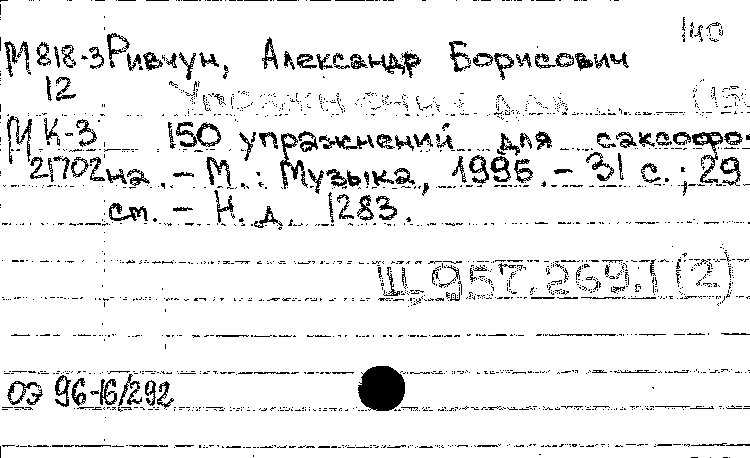 140
М818-3 Ривчун, Александр Борисович
12 Упражнения для ... (150
М К-3 150 упражнений для саксофо-
21702 на. – М.: Музыка, 1995. – 31 с.; 29
см. – Н. д. 1283.
Щ957.269.1(2)
ОЭ 96-16/292